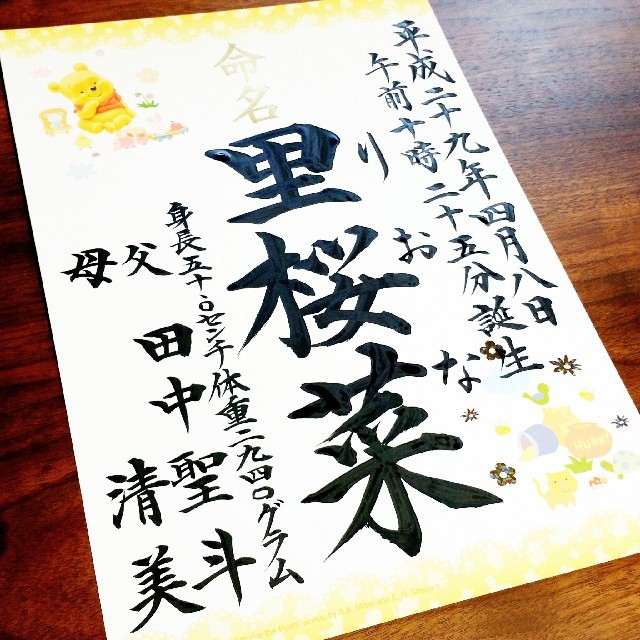 平成二十九年四月八日
午前十時二十五分誕生
命名
里桜菜
りおな
身長五十・〇センチ体重二九四〇グラム
父 田中聖斗
母 清美